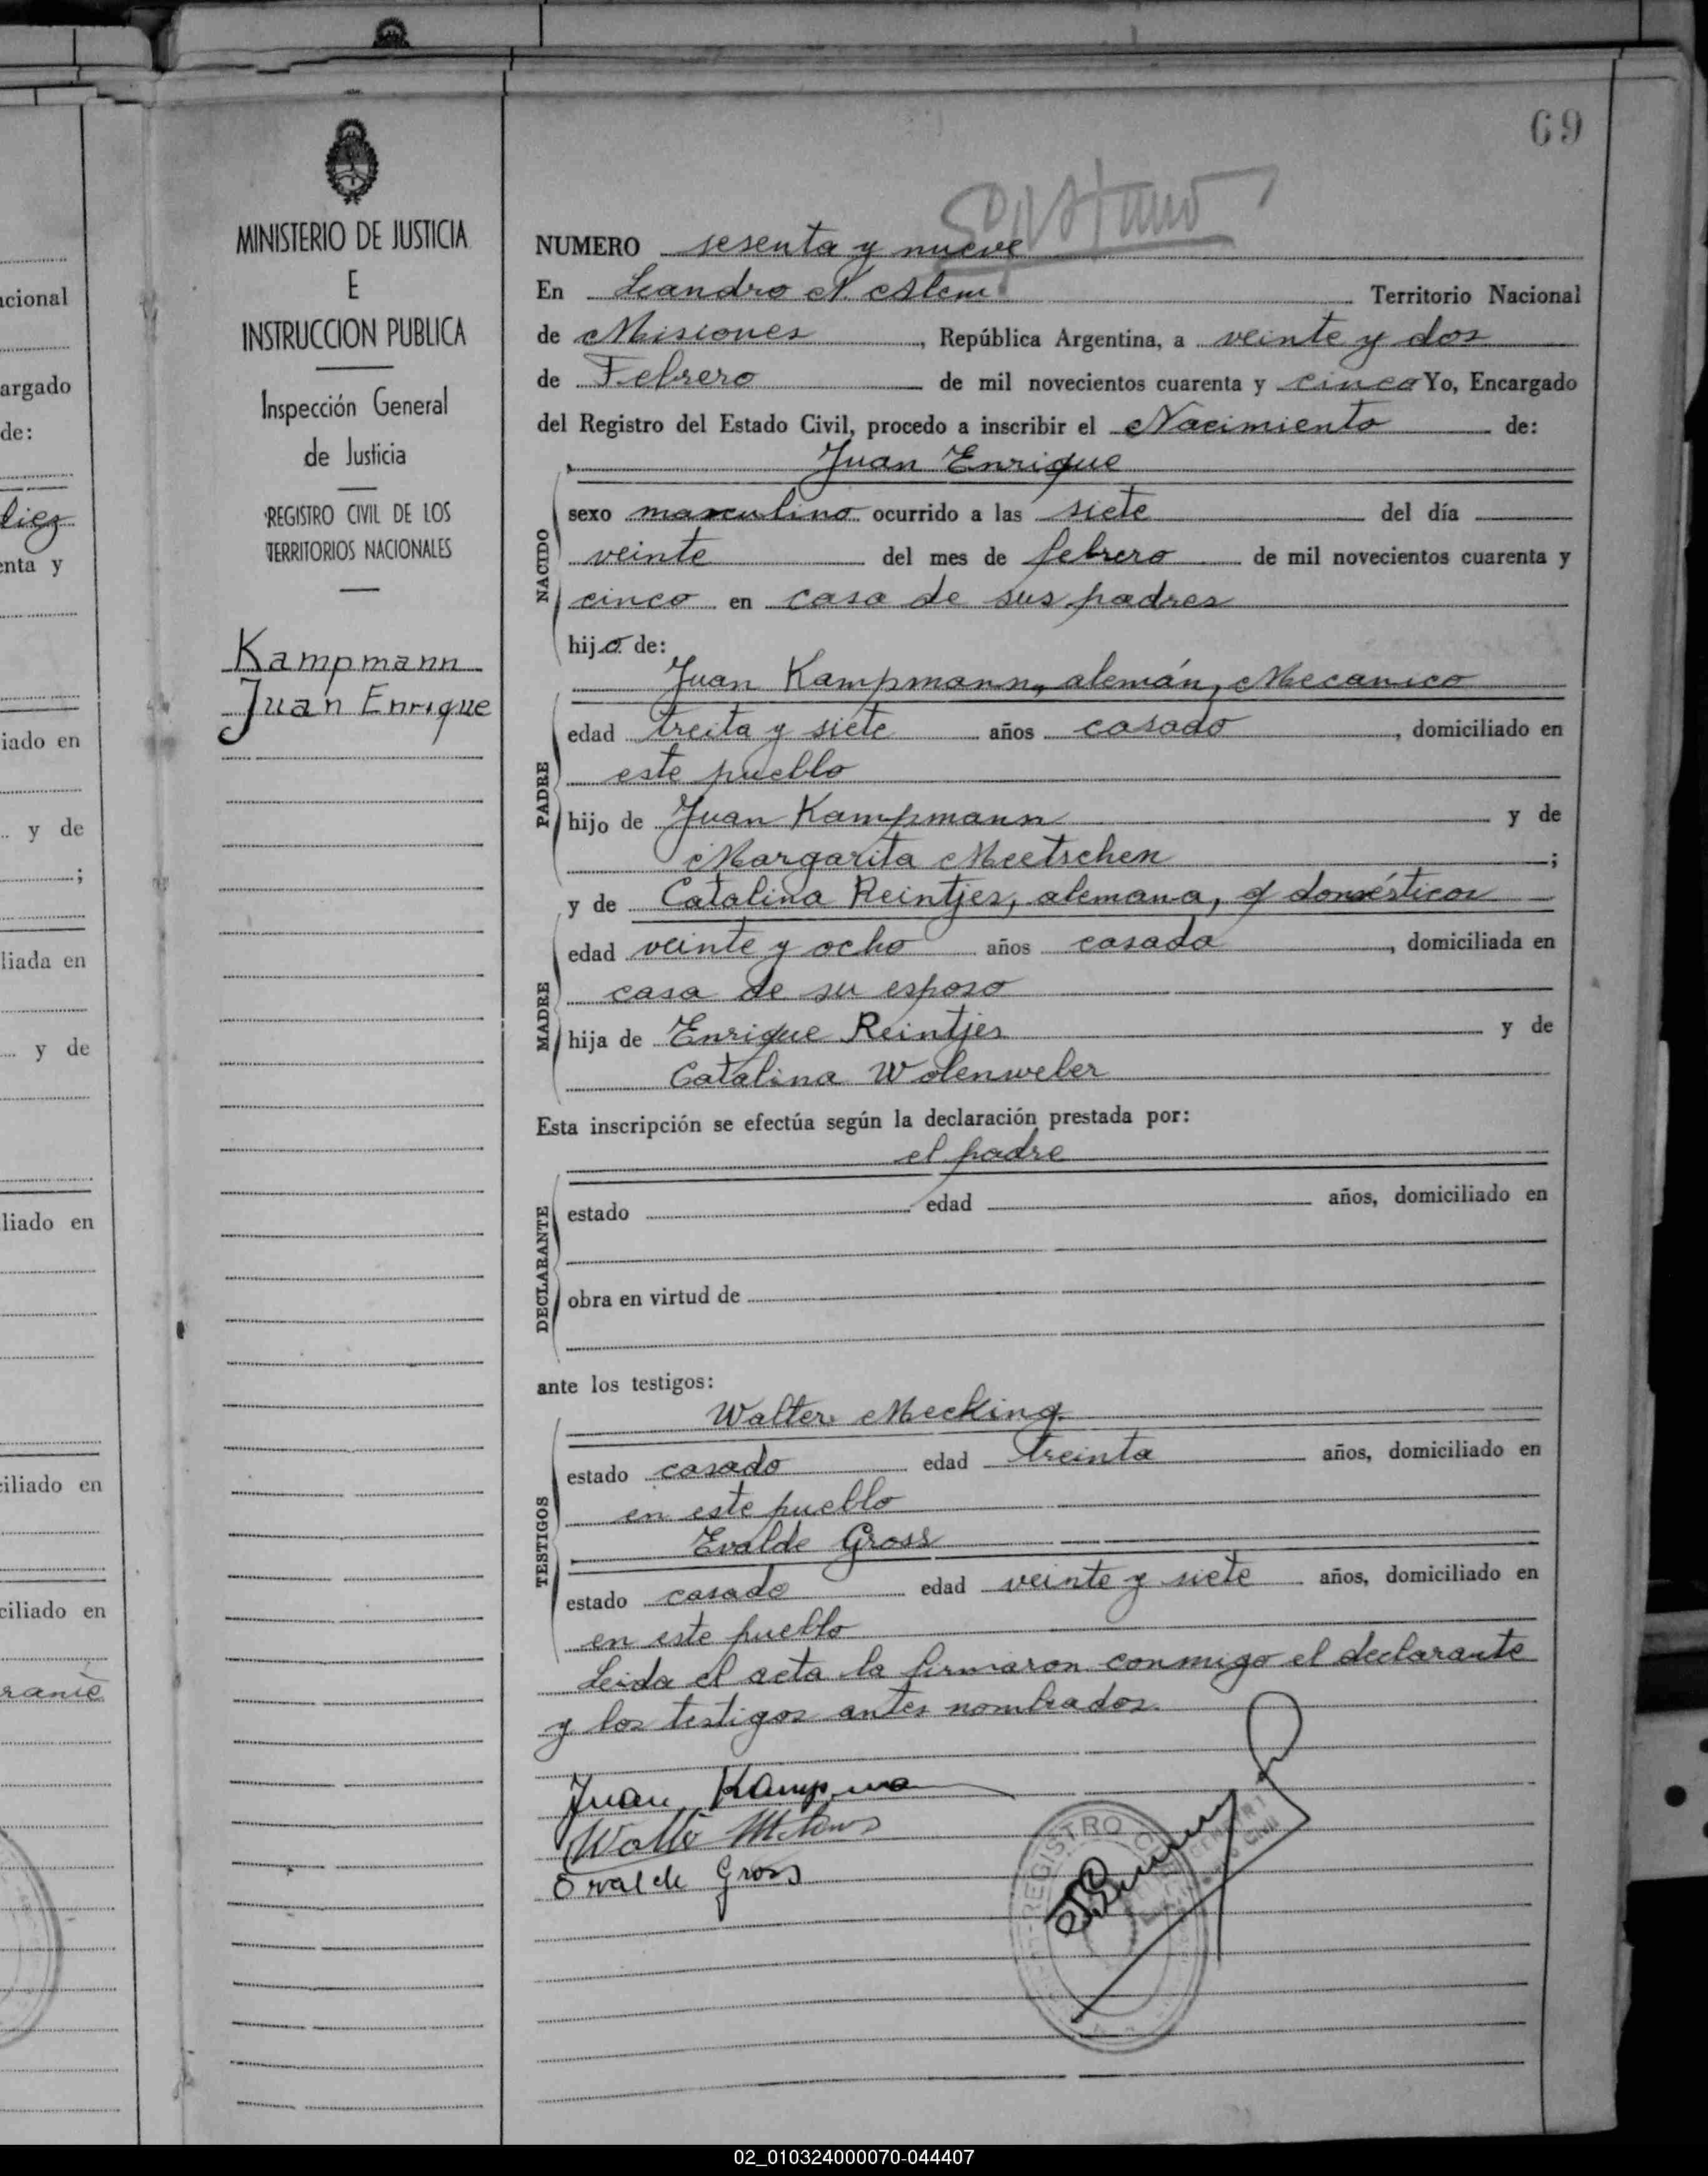 69
MINISTERIO DE JUSTICIA
E
INSTRUCCION PUBLICA
Inspección General
de Justicia
REGISTRO CIVIL DE LOS
TERRITORIOS NACIONALES
Kampmann
Juan Enrique
NUMERO sesenta y nueve
En Leandro N. Alem Territorio Nacional
de Misiones, República Argentina, a veinte y dos
de Febrero de mil novecientos cuarenta y cinco Yo, Encargado
del Registro del Estado Civil, procedo a inscribir el Nacimiento de:
Juan Enrique
NACIDO
sexo masculino ocurrido a las siete del día
veinte del mes de febrero de mil novecientos cuarenta y
cinco en casa de sus padres
hijo de:
Juan Kampmann, alemán, Mecanico
PADRE
edad treita y siete años casado, domiciliado en
este pueblo
hijo de Juan Kampmann y de
Margarita Meetschen;
y de Catalina Reintjes, alemana, q domésticos
MADRE
edad veinte y ocho años casada, domiciliada en
casa de su esposo
hija de Enrique Reintjes y de
Catalina Wolenweber
Esta inscripción se efectúa según la declaración prestada por:
el padre
DECLARANTE
estado edad años, domiciliado en
obra en virtud de
ante los testigos:
Walter Mecking
TESTIGOS
estado casado edad treinta años, domiciliado en
en este pueblo
Evalde Gross
estado casado edad veinte y siete años, domiciliado en
en este pueblo
Leida el acta la firmaron conmigo el declarante
y los testigos antes nombrados.
Juan
Evalde Gross
REGISTRO
acional
argado
de:
enta y
iado en
y de
;
liada en
y de
liado en
ciliado en
ciliado en
02_010324000070-044407